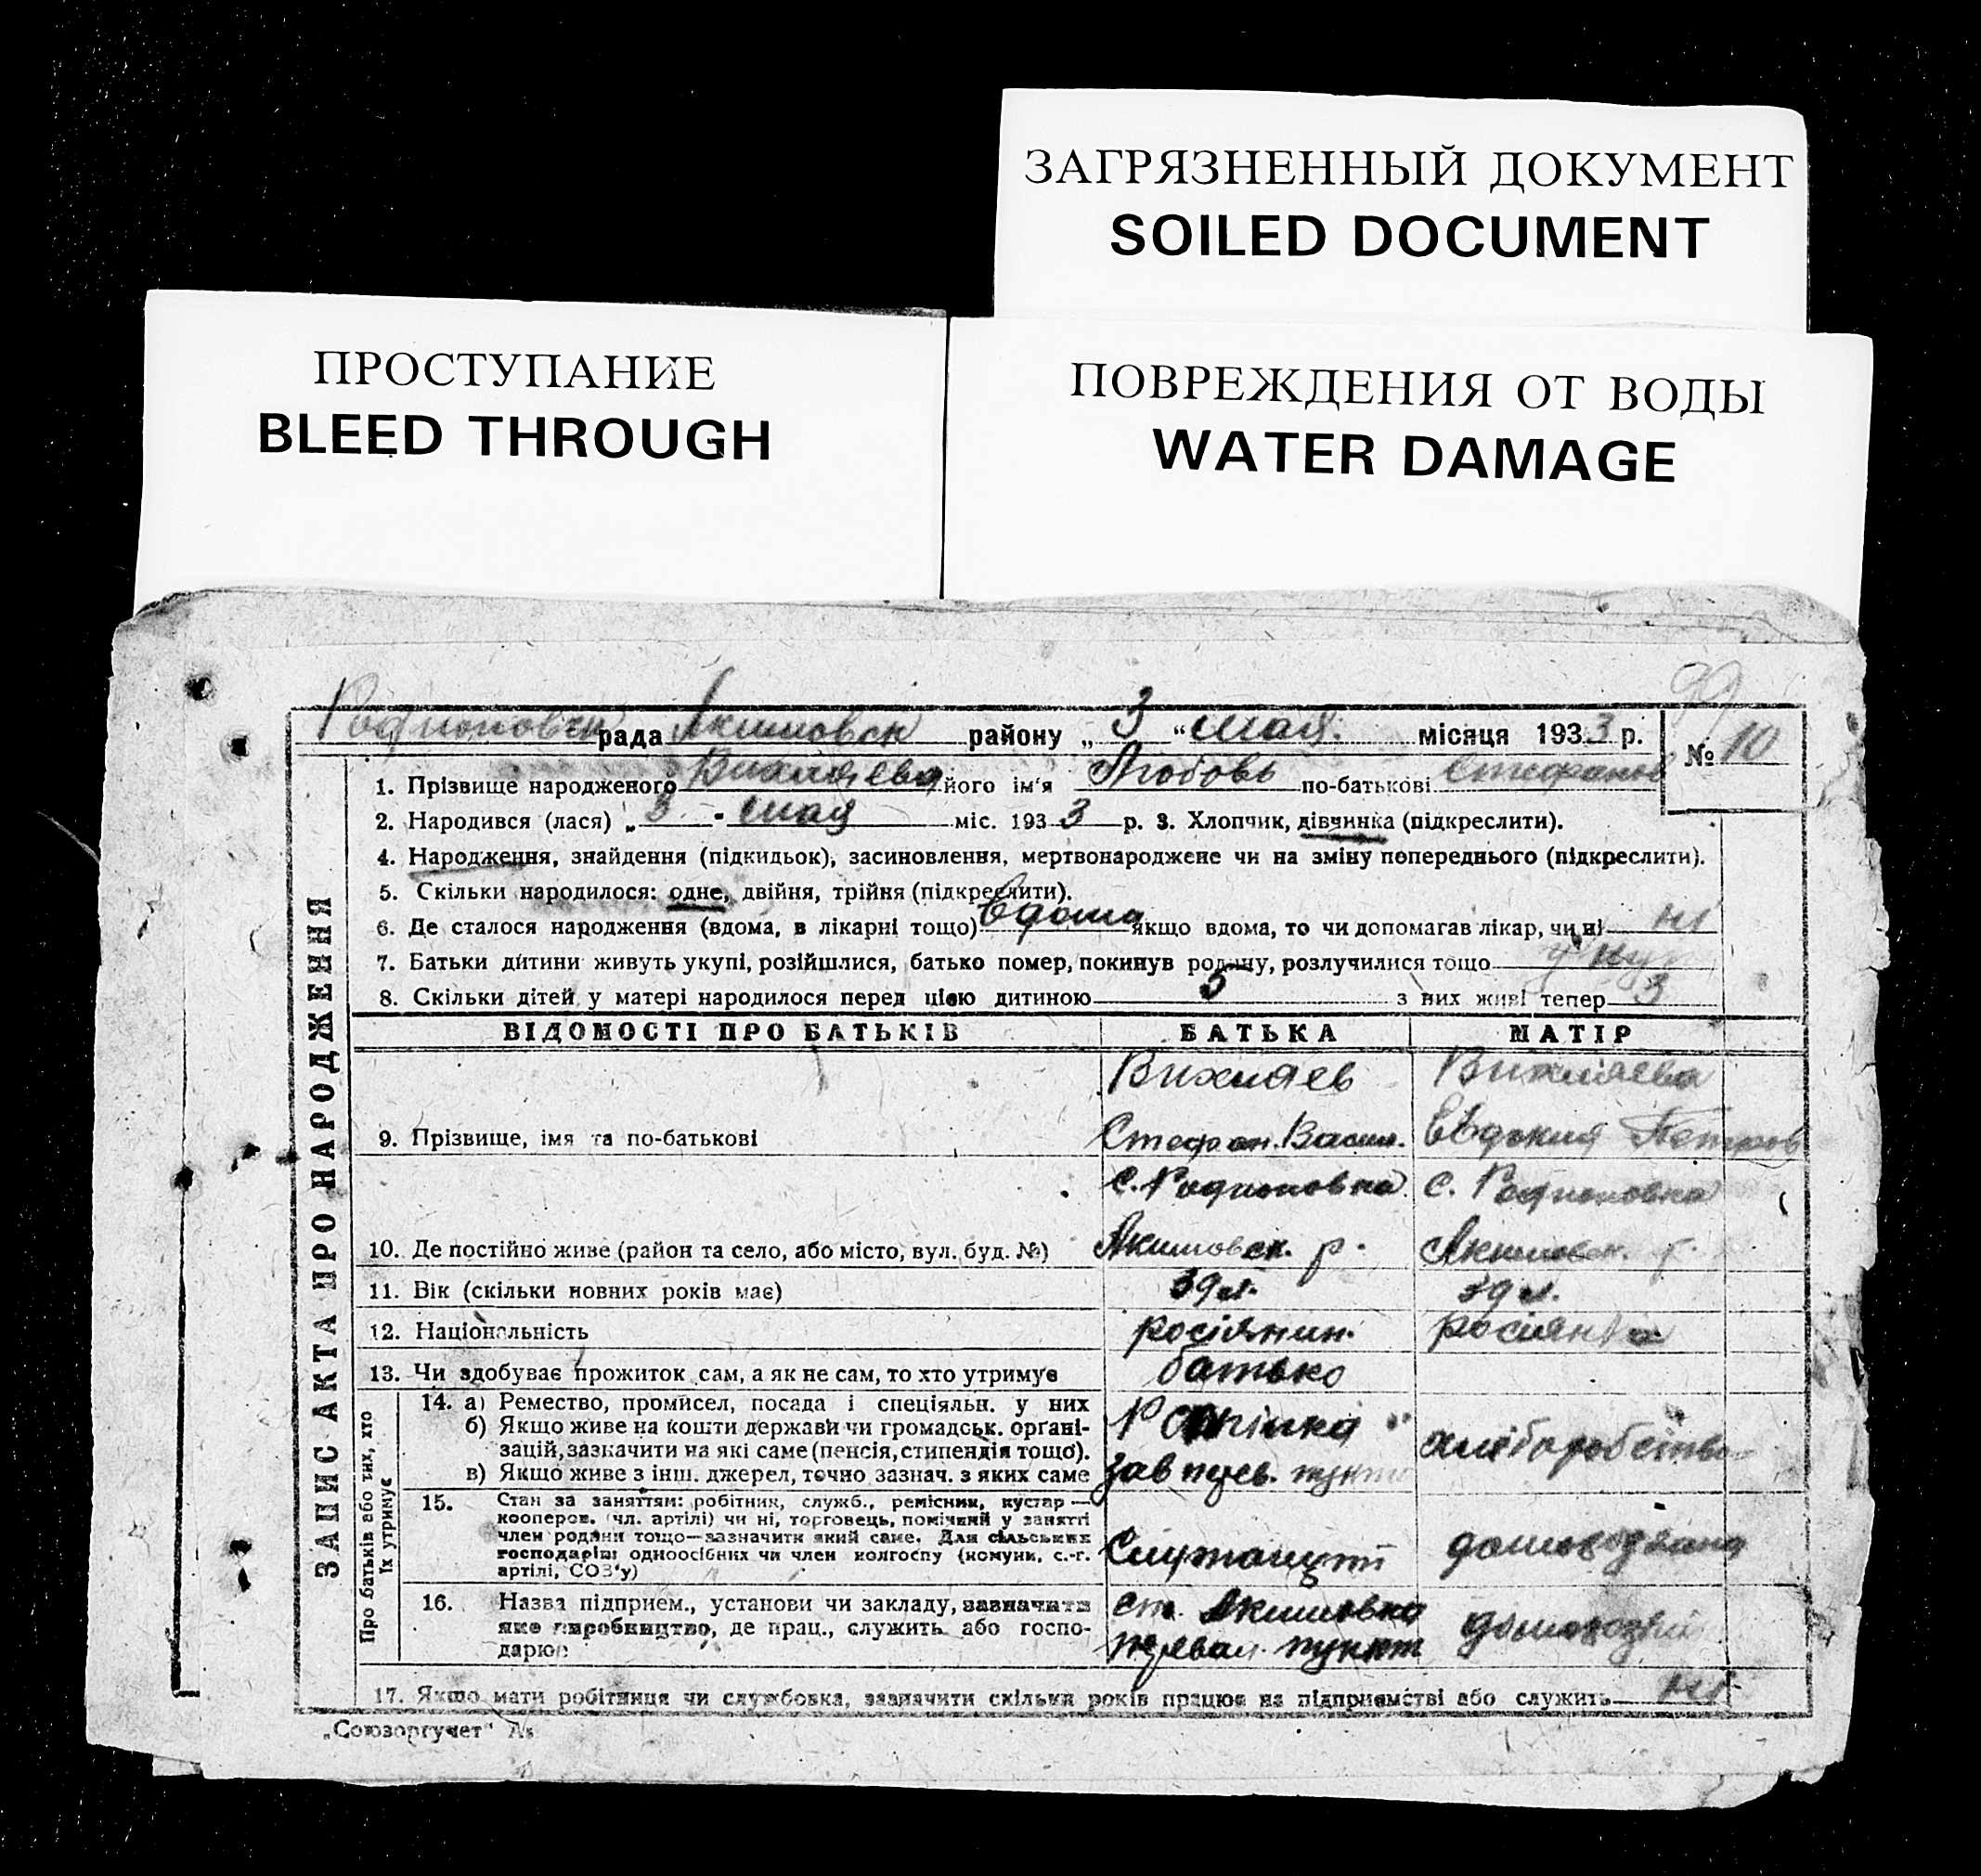 ЗАГРЯЗНЕННЫЙ ДОКУМЕНТ
SOILED DOCUMENT
ПРОСТУПАНИЕ
BLEED THROUGH
ПОВРЕЖДЕНИЯ ОТ ВОДЫ
WATER DAMAGE
99
Родионовск рада Якимовск району „3“ мая місяця 1933 р. № 10
ЗАПИС АКТА ПРО НАРОДЖЕННЯ
1. Прізвище народженого Вихляева його ім'я Любовь по-батькові Стефанов
2. Народився (лася) „3 - мая міс. 1933 р. 3. Хлопчик, дівчинка (підкреслити).
4. Народження, знайдення (підкидьок), засиновлення, мертвонароджене чи на зміну попереднього (підкреслити).
5. Скільки народилося: одне, двійня, трійня (підкреслити).
6. Де сталося народження (вдома, в лікарні тощо) Вдома якщо вдома, то чи допомагав лікар, чи ні ні
7. Батьки дитини живуть укупі, розійшлися, батько помер, покинув родину, розлучилися тощо
8. Скільки дітей у матері народилося перед цією дитиною 5 з них живі тепер 3
ВІДОМОСТІ ПРО БАТЬКІВ БАТЬКА МАТІР
Вихляев Вихляева
9. Прізвище, імя та по-батькові Стефан. Васил. Евдокия Петров
с. Родионовка с. Родионовка
10. Де постійно живе (район та село, або місто, вул. буд. №) Якимовск. р. Якимовск. р.
11. Вік (скільки повних років має) 39 л. 39 л.
12. Національність росіянин. росіянка
13. Чи здобуває прожиток сам, а як не сам, то хто утримує батько
Про батьків або тих, хто їх утримує
14. а) Ремество, промисел, посада і спеціяльн. у них
б) Якщо живе на кошти держави чи громадськ. орґані-
зацій, зазначити на які саме (пенсія, стипендія тощо). хліборобство
в) Якщо живе з інш. джерел, точно зазнач. з яких саме зав пункт
15. Стан за заняттям: робітник, служб., ремісник, кустар —
кооперов. (чл. артілі) чи ні, торговець, помічний у занятті
член родини тощо—зазначити який саме. Для сільських
господарів: одноосібник чи член колгоспу (комуни, с.-г.
артілі, СОЗ'у)
16. Назва підприєм., установи чи закладу, зазначити ст. Якимовка
яке виробництво, де прац., служить або госпо- пункт
дарює
17. Якщо мати робітниця чи службовка, зазначити скільки років працює на підприємстві або служить ні
„Союзоргучет“